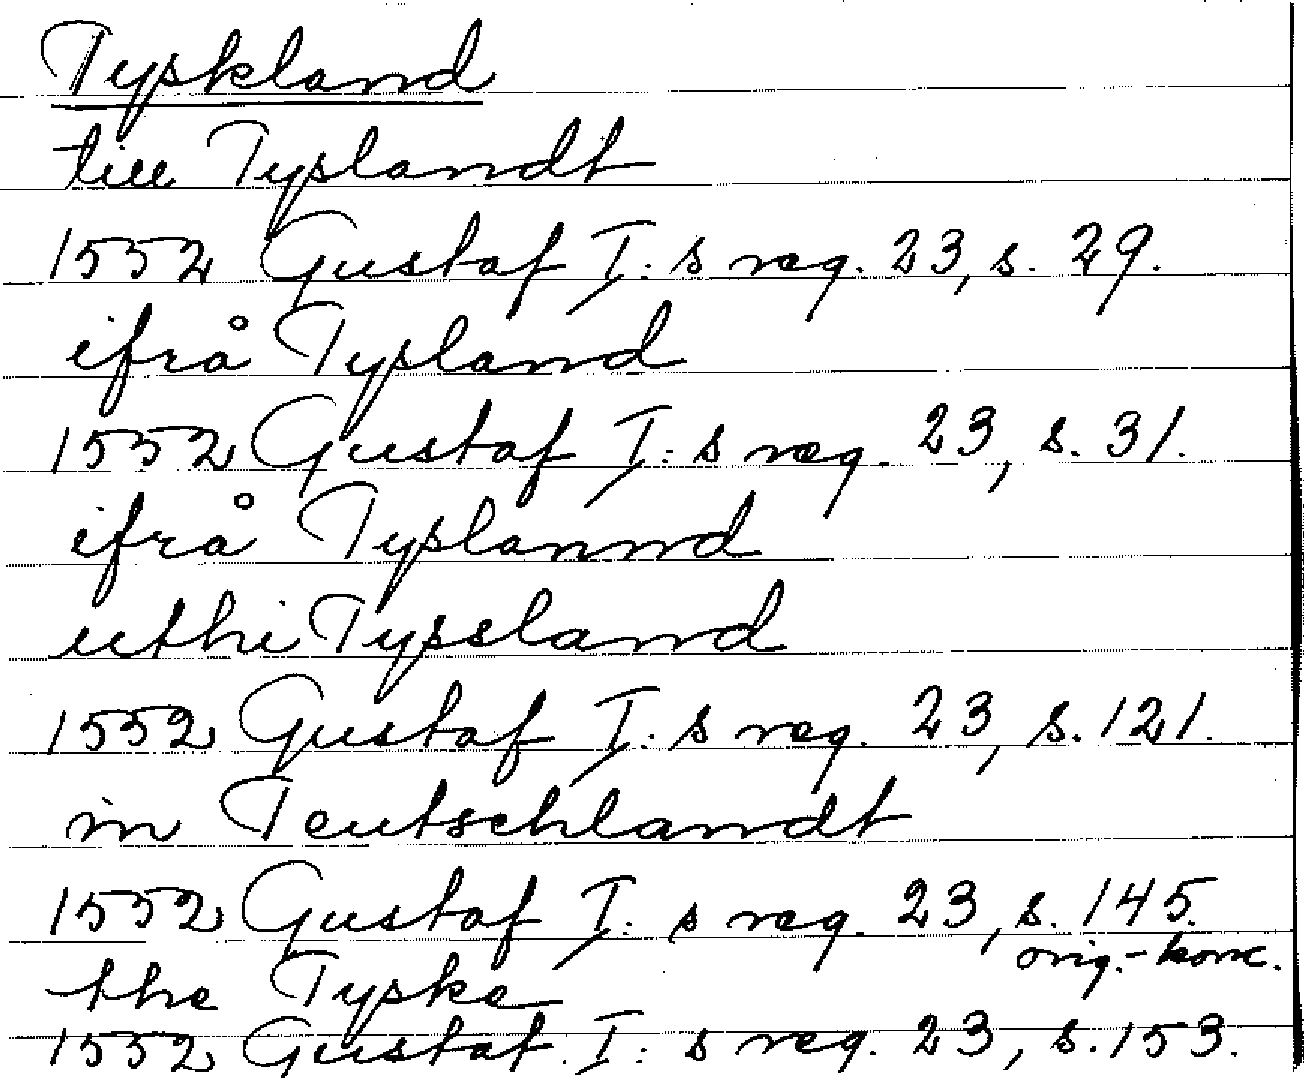 Tyskland
till Tyslandt
1552 Gustaf I:s reg. 23, s. 29.
ifrå Tysland
1552 Gustaf I:s reg. 23, s. 31.
ifrå Tyslannd
uthi Tyssland
1552 Gustaf I:s reg. 23, s. 121.
in Teutschlandt
1552 Gustaf I:s reg. 23, s. 145.
orig.-konc.
the Tyske
1552 Gustaf I:s reg. 23, s. 153.